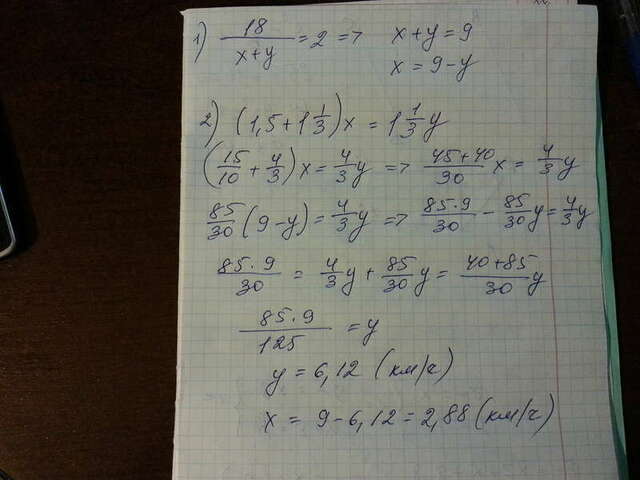 1) 18/(x+y) = 2 => x+y = 9
x = 9-y
2) (1,5+1 1/3)x = 1 1/3 y
(15/10 + 4/3)x = 4/3 y => (45+40)/30 x = 4/3 y
85/30 (9-y) = 4/3 y => 85·9/30 - 85/30 y = 4/3 y
85·9/30 = 4/3 y + 85/30 y = (40+85)/30 y
85·9/125 = y
y = 6,12 (км/ч)
x = 9-6,12 = 2,88 (км/ч)